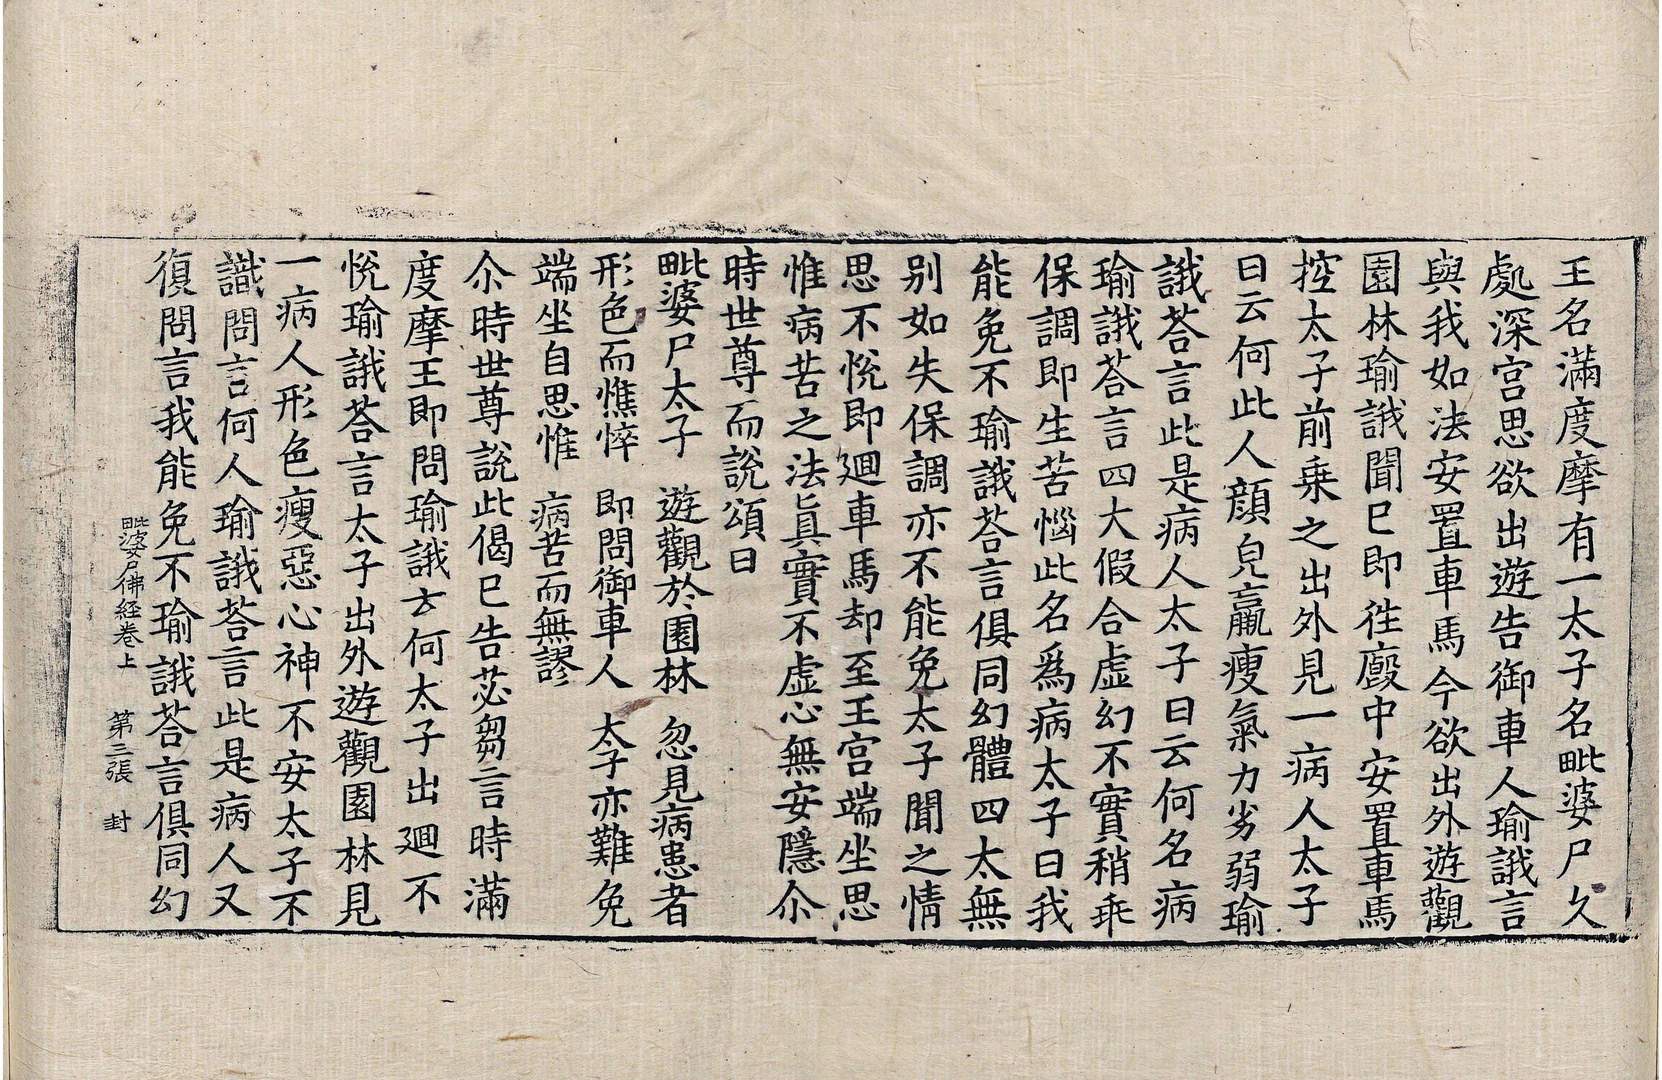 王名滿度摩有一太子名毗婆尸久
處深宮思欲出遊告御車人瑜誐言
與我如法安置車馬今欲出外遊觀
園林瑜誐聞巳即徃廏中安置車馬
控太子前乗之出外見一病人太子
曰云何此人顔皃羸瘦氣力劣弱瑜
誐荅言此是病人太子曰云何名病
瑜誐荅言四大假合虚幻不實稍乖
保調即生苦惱此名爲病太子曰我
能免不瑜誐荅言俱同幻體四大無
別如失保調亦不能免太子聞之情
思不悅即迴車馬却至王宮端坐思
惟病苦之法眞實不虚心無安隱尒
時世尊而說頌曰
毗婆尸太子　遊觀於園林　忽見病患者
形色而憔悴　即問御車人　太子亦難免
端坐自思惟　病苦而無謬
尒時世尊說此偈巳告苾芻言時滿
度摩王即問瑜誐言何太子出迴不
悅瑜誐荅言太子出外遊觀園林見
一病人形色瘦惡心神不安太子不
識問言何人瑜誐荅言此是病人又
復問言我能免不瑜誐荅言俱同幻
毗婆尸佛經卷上　第三張　封